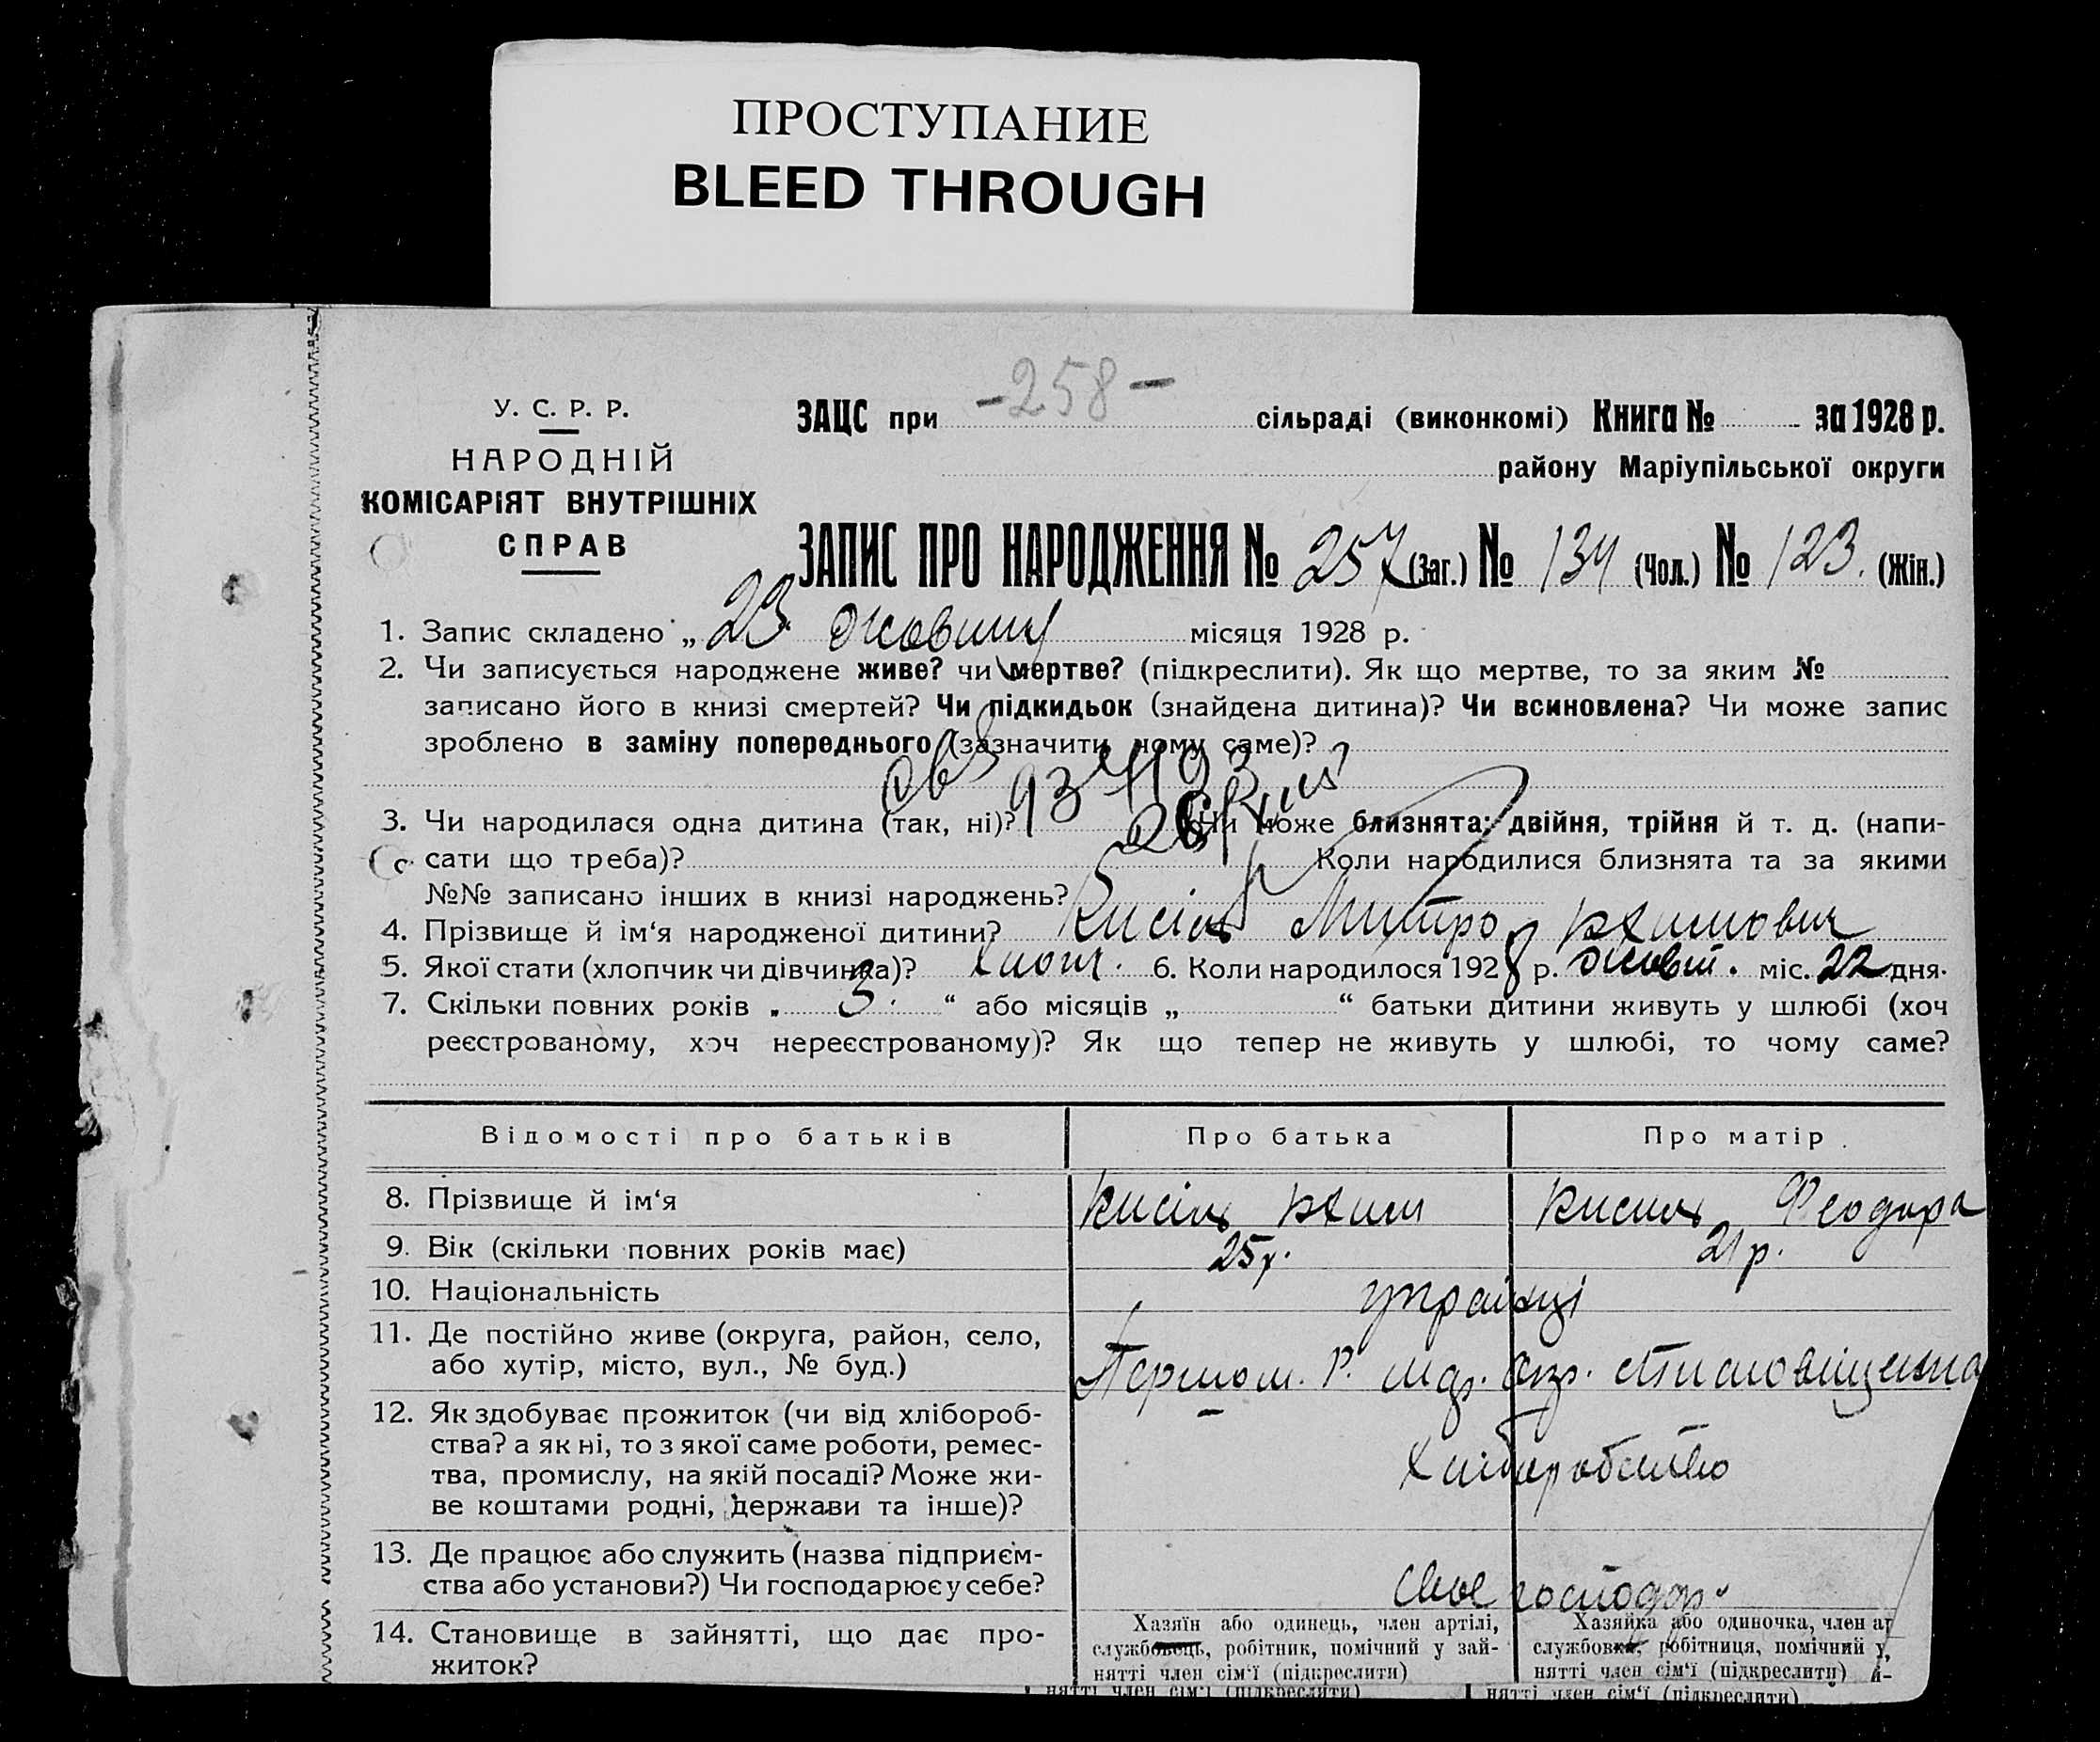 ПРОСТУПАНИЕ
BLEED THROUGH
У. С. Р. Р.
НАРОДНІЙ
КОМІСАРІЯТ ВНУТРІШНІХ
СПРАВ
ЗАЦС при -258- сільраді (виконкомі) Книга № за 1928 р.
району Маріупільської округи
ЗАПИС ПРО НАРОДЖЕННЯ № 257 (Заг.) № 134 (Чол.) № 123. (Жін.)
1. Запис складено „ 23. жовтня місяця 1928 р.
2. Чи записується народжене живе? чи мертве? (підкреслити). Як що мертве, то за яким №
записано його в книзі смертей? Чи підкидьок (знайдена дитина)? Чи всиновлена? Чи може запис
зроблено в заміну попереднього (зазначити чому саме)?
3. Чи народилася одна дитина (так, ні)? Чи може близнята: двійня, трійня й т. д. (напи-
сати що треба)? Коли народилися близнята та за якими
№№ записано інших в книзі народжень?
4. Прізвище й ім'я народженої дитини? Кисіль Митро
5. Якої стати (хлопчик чи дівчинка)? хлопч. 6. Коли народилося 1928 р. жовт. міс. 22 дня.
7. Скільки повних років „ 3. “ або місяців „ “ батьки дитини живуть у шлюбі (хоч
реєстрованому, хоч нереєстрованому)? Як що тепер не живуть у шлюбі, то чому саме?
Відомості про батьків
Про батька
Про матір
8. Прізвище й ім'я
Кисіль
Феодора
9. Вік (скільки повних років має)
25р.
21р.
10. Національність
українці
11. Де постійно живе (округа, район, село,
або хутір, місто, вул., № буд.)
12. Як здобуває прожиток (чи від хлібороб-
ства? а як ні, то з якої саме роботи, ремес-
тва, промислу, на якій посаді? Може жи-
ве коштами родні, держави та інше)?
Хліборобство
13. Де працює або служить (назва підприєм-
ства або установи?) Чи господарює у себе?
своє господар.
14. Становище в зайнятті, що дає про-
житок?
Хазяїн або одинець, член артілі,
службовець, робітник, помічний у зай-
нятті член сім'ї (підкреслити)
Хазяйка або одиночка, член ар
службовка, робітниця, помічний у
нятті член сім'ї (підкреслити)
нятті член сім'ї (підкреслити)
нятті член сім'ї (підкреслити)